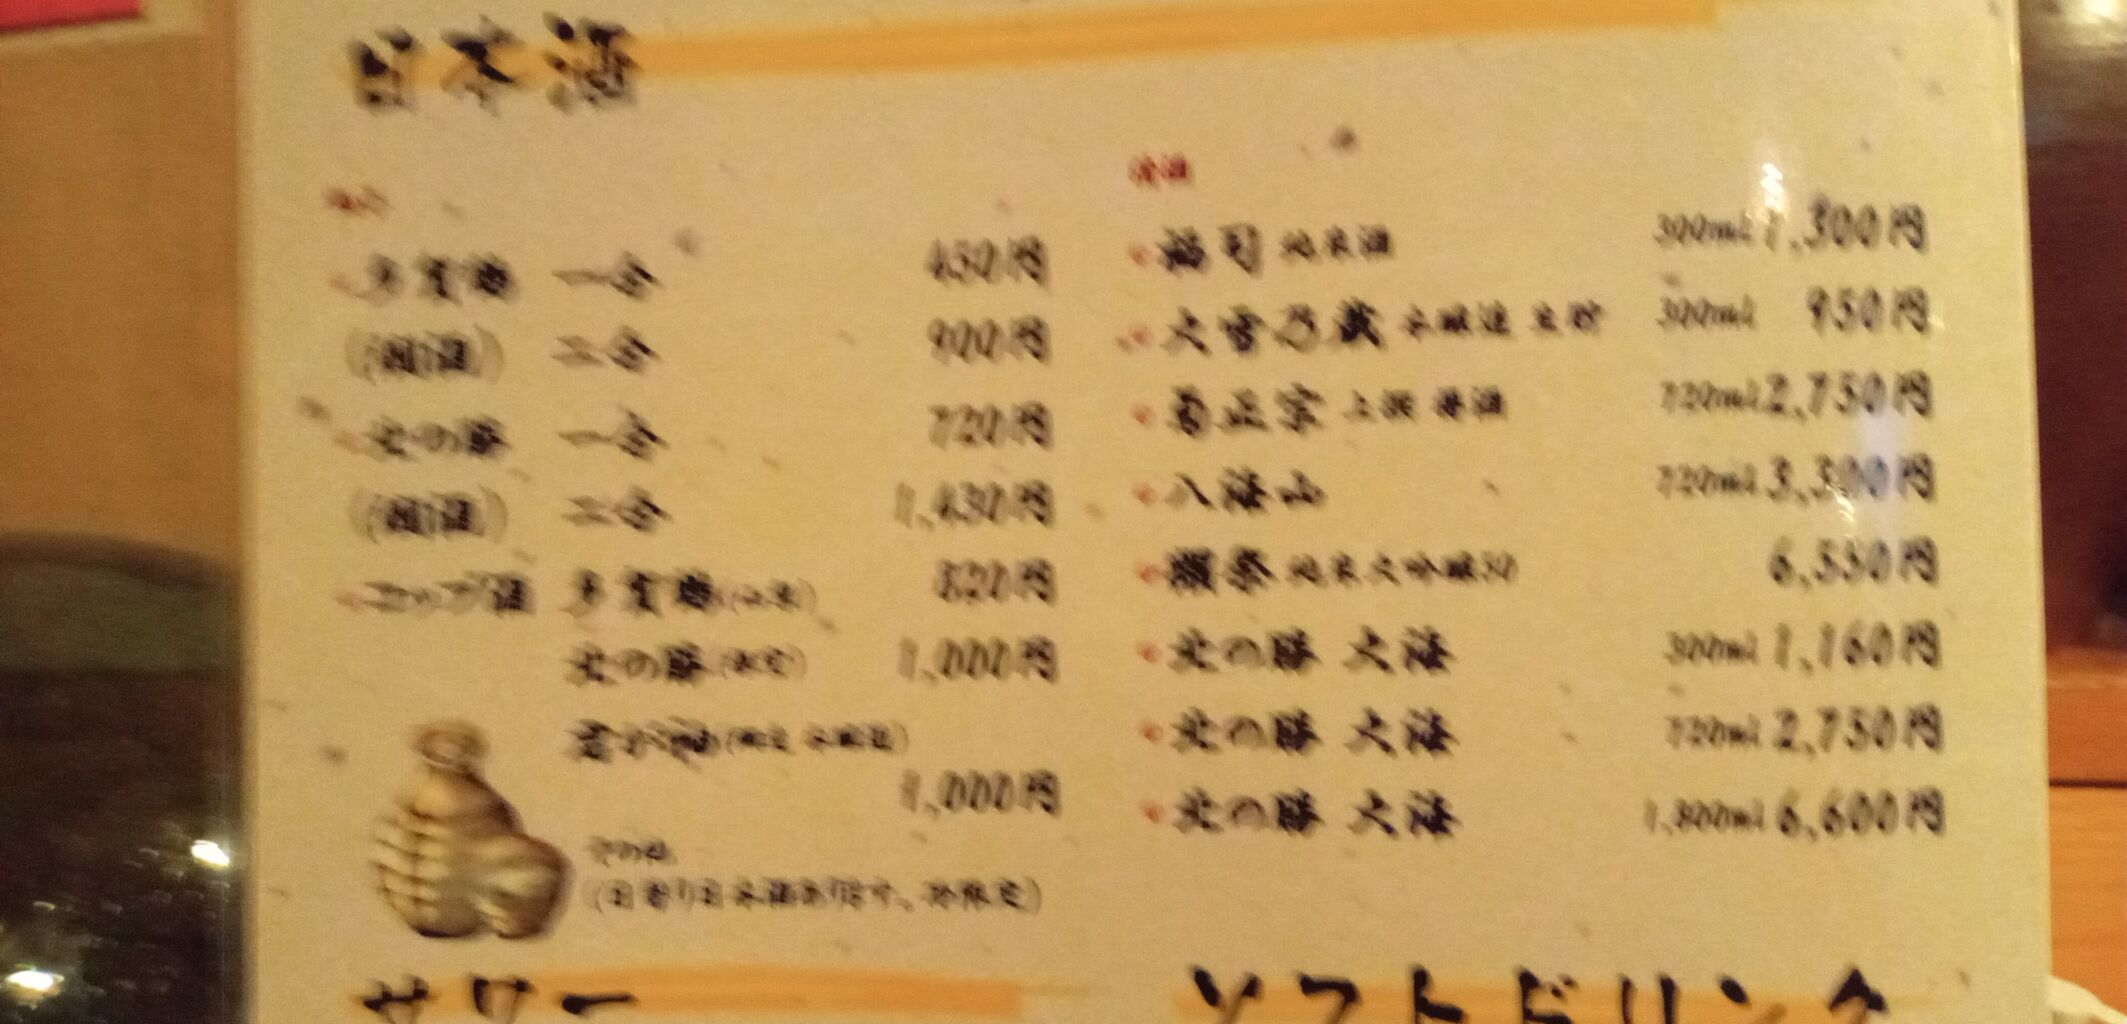 日本酒
多賀治 一合 450円
(燗酒) 二合 900円
北の勝 一合 720円
(燗酒) 二合 1,430円
コップ酒 820円
北の勝 1,000円
1,000円
その他
(日替り日本酒あります。 )
清酒
福司 純米酒 300ml 1,300円
大雪乃蔵 本醸造 生貯 300ml 950円
菊正宗 上撰 720ml 2,750円
八海山 720ml 3,300円
獺祭 純米大吟醸50 6,550円
北の勝 大海 300ml 1,160円
北の勝 大海 720ml 2,750円
北の勝 大海 1,800ml 6,600円
サワー
ソフトドリンク